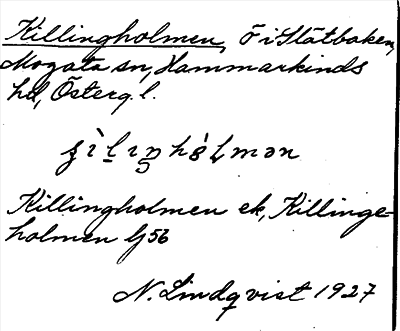 Killingholmen, ö i Slätbaken,
Mogata sn, Hammarkinds
hd, Österg. l.
Killingholmen ek, Killinge-
holmen Gj 56
N. Lindqvist 1927